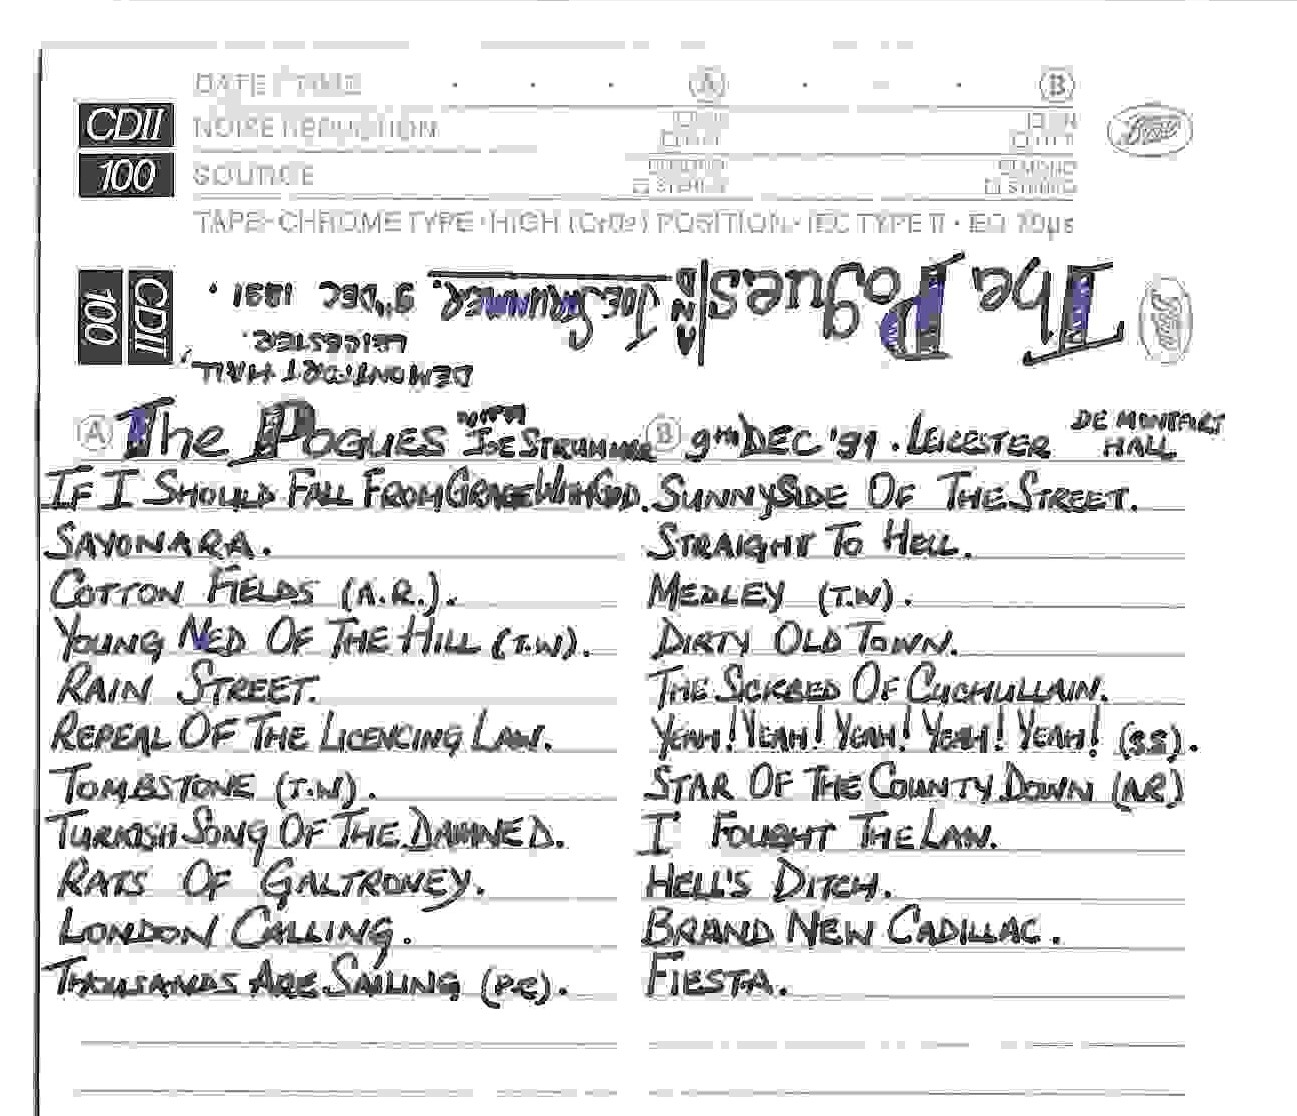 DATE / TIME A B
CDII NOISE REDUCTION ON ON Boots
100 SOURCE STEREO STEREO
TAPE · CHROME TYPE · HIGH (CrO2) POSITION · IEC TYPE II · EQ 70µs
CDII 100
The Pogues AND JOE STRUMMER. 9TH DEC 1991.
DEMONTFORT HALL
LEICESTER.
A The POGUES WITH JOE STRUMMER
IF I SHOULD FALL FROM GRACE WITH GOD.
SAYONARA.
COTTON FIELDS (A.R.).
YOUNG NED OF THE HILL (T.W).
RAIN STREET.
REPEAL OF THE LICENCING LAW.
TOMBSTONE (T.W).
TURKISH SONG OF THE DAMNED.
RATS OF GALTRONEY.
LONDON CALLING.
THOUSANDS ARE SAILING (P.C).
B 9TH DEC '91. LEICESTER DE MONTFORT HALL
SUNNYSIDE OF THE STREET.
STRAIGHT TO HELL.
MEDLEY (T.W).
DIRTY OLD TOWN.
THE SICKBED OF CUCHULLAIN.
YEAH! YEAH! YEAH! YEAH! YEAH! (S.S).
STAR OF THE COUNTY DOWN (A.R)
I FOUGHT THE LAW.
HELL'S DITCH.
BRAND NEW CADILLAC.
FIESTA.